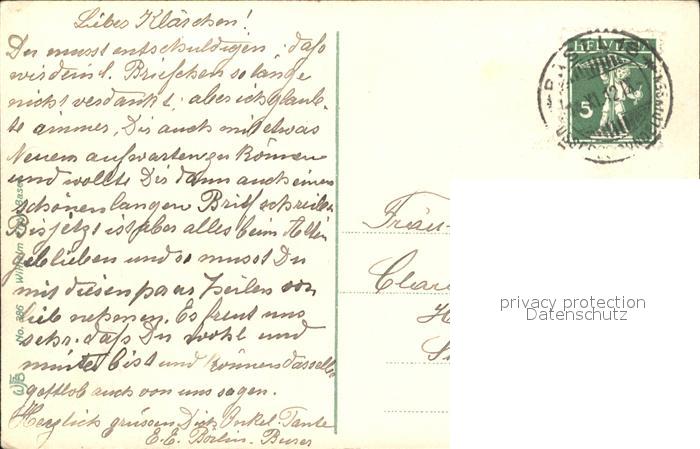 Liebes Klärchen!
Du musst entschuldigen, dass
wir dein l. Briefchen so lange
nicht verdankt; aber ich glaub-
te immer, Dir auch mit etwas
Neuem aufwarten zu können
und wollte Dir dann auch einen
schönen langen Brief schreiben.
Bis jetzt ist aber alles beim Alten
geblieben und so musst Du
mit diesen paar Zeilen vor-
lieb nehmen. Es freut uns
sehr, dass Du wohl und
munter bist und können dasselbe
gottlob auch von uns sagen.
Herzlich grüssen Dich Onkel Tante
E. E. Börlin-Buser
No. 386 Wilhelm Basel
HELVETIA
5
BASEL
XI. 12.
Fräu-
Clar
privacy protection
Datenschutz